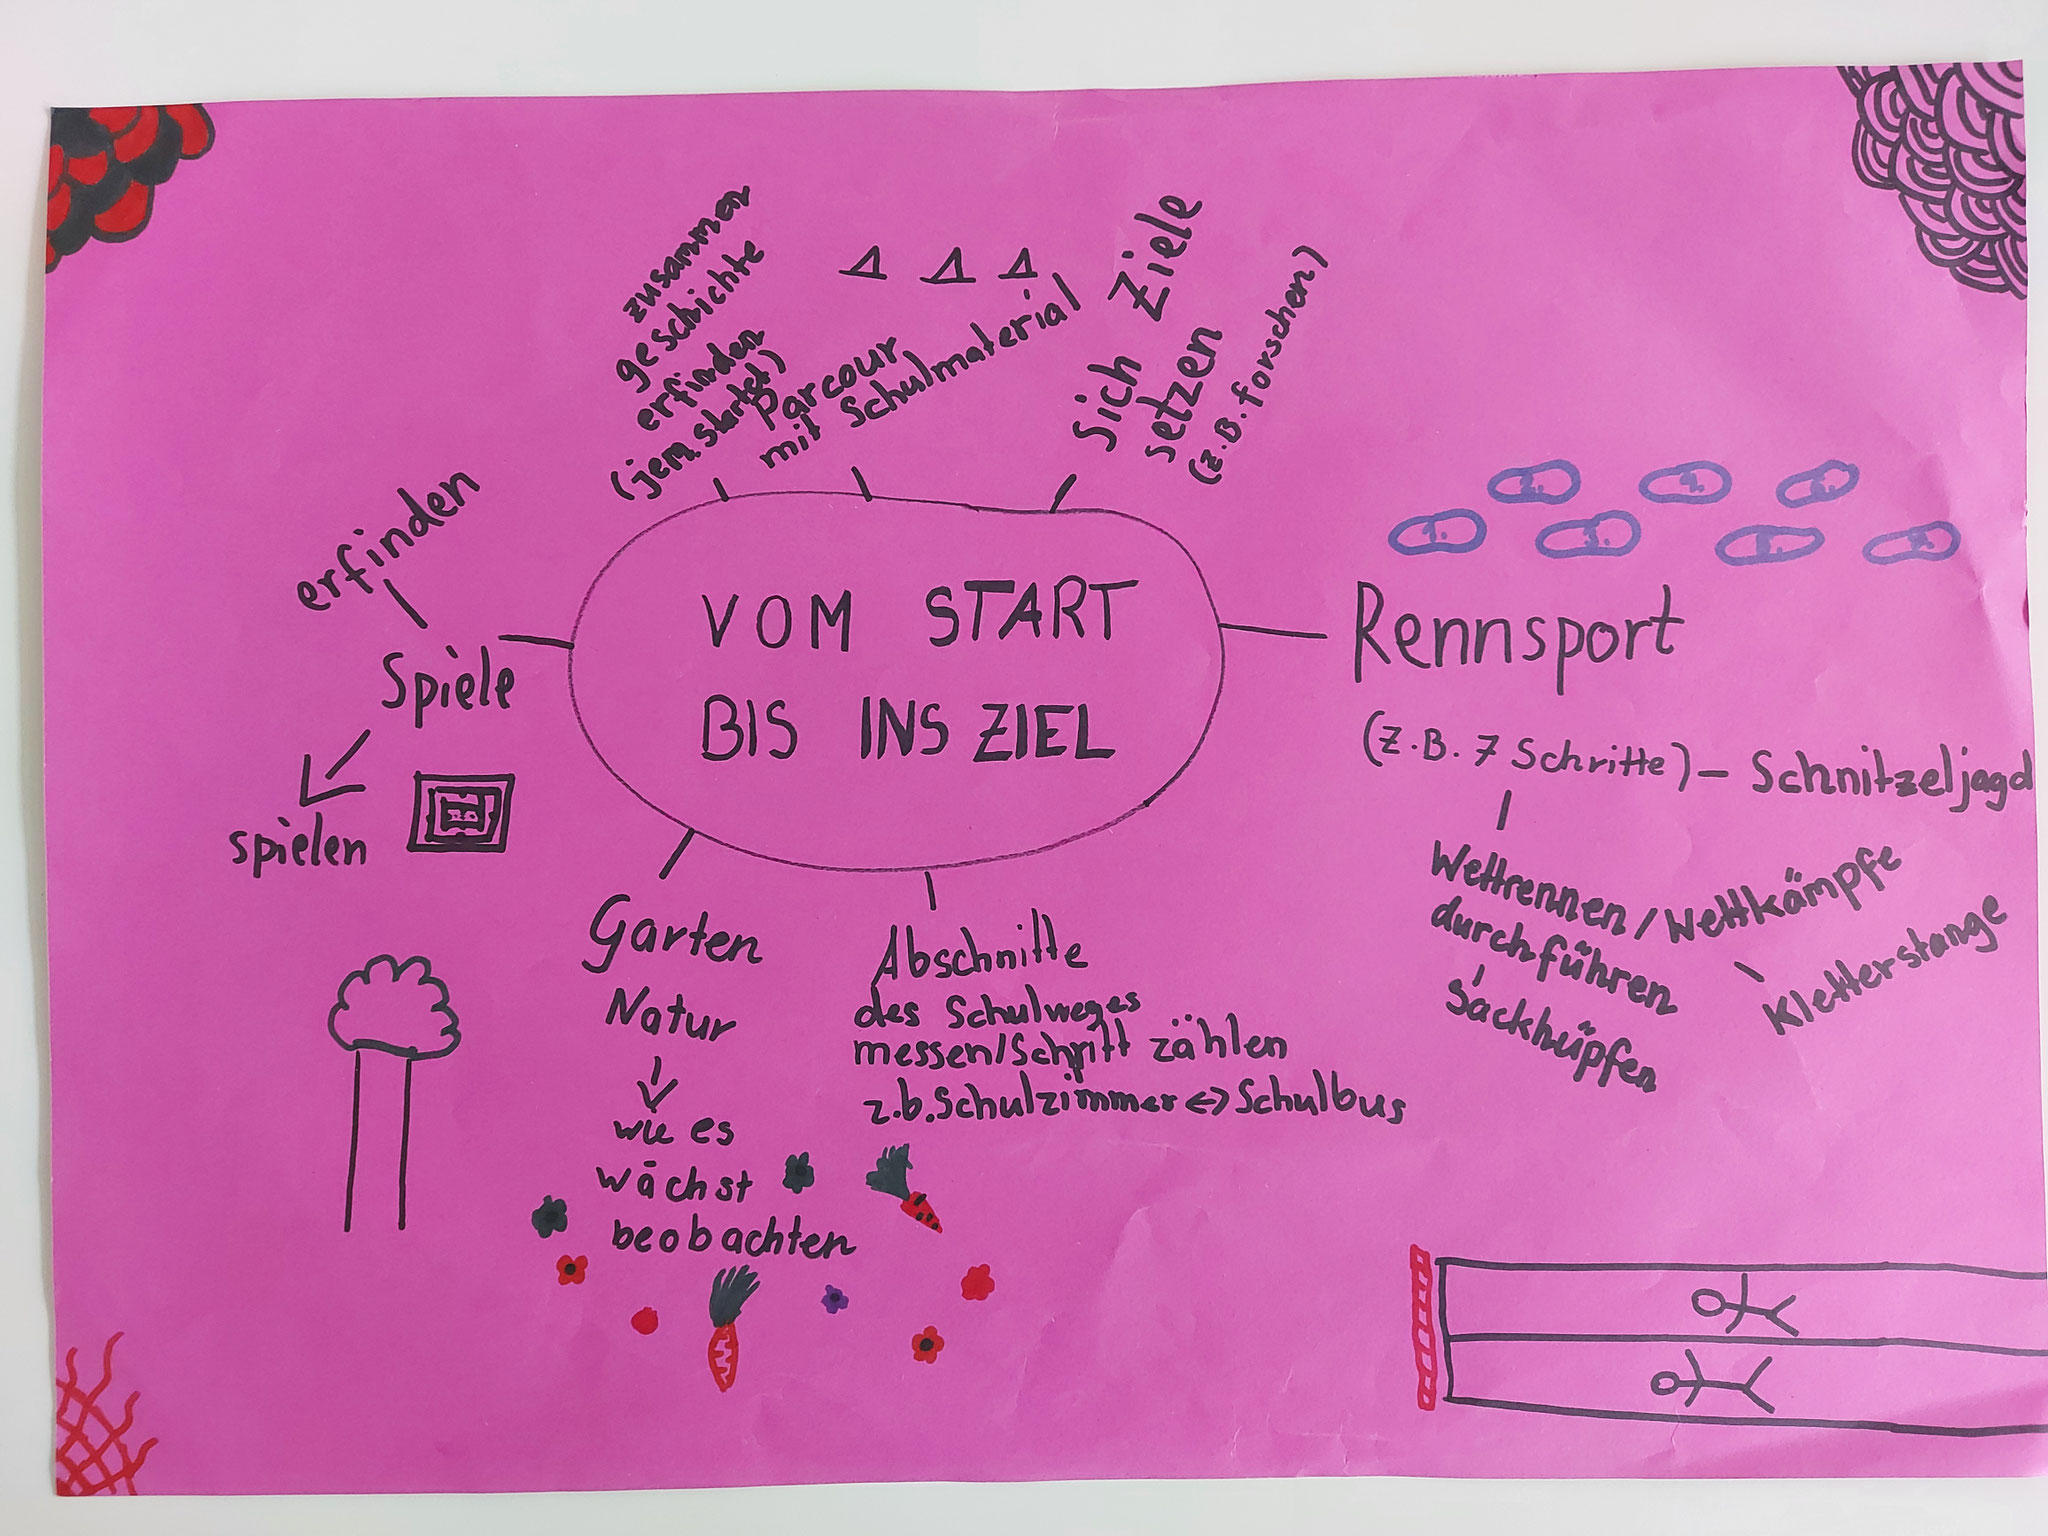 VOM START
BIS INS ZIEL
zusammen
geschichte
erfinden
(jem. startet)
Parcour
mit Schulmaterial
Sich Ziele
setzen
(z.B. forschen)
Rennsport
(z.B. 7 Schritte) – Schnitzeljagd
Wettrennen / Wettkämpfe
durchführen
Sackhüpfen
Kletterstange
Abschnitte
des Schulweges
messen/Schritt zählen
z.b. Schulzimmer <-> Schulbus
Garten
Natur
wie es
wächst
beobachten
Spiele
erfinden
spielen